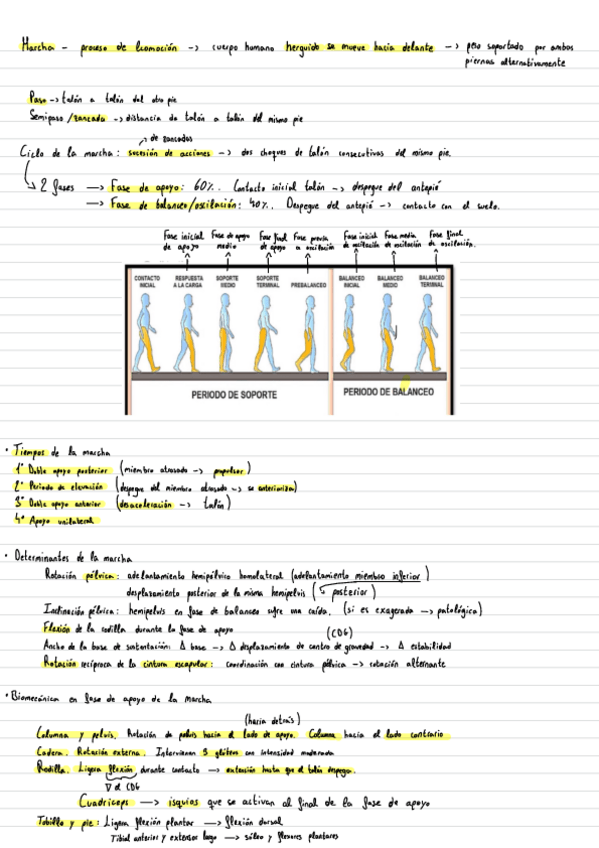 Marcha - proceso de locomoción -> cuerpo humano herguido se mueve hacia delante -> peso soportado por ambos
piernas alternativamente
Paso -> talón a talón del otro pie
Semipaso / zancada -> distancia de talón a talón del mismo pie
de zancadas
Ciclo de la marcha: sucesión de acciones -> dos choques de talón consecutivos del mismo pie.
2 fases -> Fase de apoyo: 60%. Contacto inicial talón -> despegue del antepié
-> Fase de balanceo/oscilación: 40%. Despegue del antepié -> contacto con el suelo.
Fase inicial de apoyo Fase de apoyo medio Fase final de apoyo Fase previa a oscilación Fase inicial de oscilación Fase media de oscilación Fase final de oscilación.
CONTACTO INICIAL RESPUESTA A LA CARGA SOPORTE MEDIO SOPORTE TERMINAL PREBALANCEO BALANCEO INICIAL BALANCEO MEDIO BALANCEO TERMINAL
PERIODO DE SOPORTE PERIODO DE BALANCEO
• Tiempos de la marcha
1º Doble apoyo posterior (miembro atrasado -> propulsor)
2º Periodo de elevación (despegue del miembro atrasado -> se anterioriza)
3º Doble apoyo anterior (desaceleración -> talón)
4º Apoyo unilateral
• Determinantes de la marcha
Rotación pélvica: adelantamiento hemipélvico homolateral (adelantamiento miembro inferior)
desplazamiento posterior de la misma hemipelvis (-> posterior)
Inclinación pélvica: hemipelvis en fase de balanceo sufre una caída. (si es exagerada -> patológica)
Flexión de la rodilla durante la fase de apoyo
(CDG)
Ancho de la base de sustentación: Δ base -> Δ desplazamiento de centro de gravedad -> Δ estabilidad
Rotación recíproca de la cintura escapular: coordinación con cintura pélvica -> rotación alternante
• Biomecánica en fase de apoyo de la marcha
(hacia detrás)
Columna y pelvis. Rotación de pelvis hacia el lado de apoyo. Columna hacia el lado contrario
Cadera. Rotación externa. Intervienen 3 glúteos con intensidad moderada
Rodilla. Ligera flexión durante contacto -> extensión hasta que el talón despega.
∇ el CDG
Cuadriceps -> isquios que se activan al final de la fase de apoyo
Tobillo y pie: Ligera flexión plantar -> flexión dorsal
Tibial anterior y extensor largo -> sóleo y flexores plantares